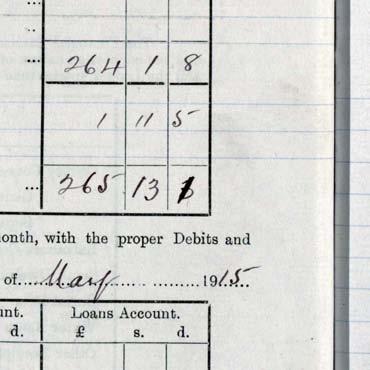 ... 264 1 8
1 11 5
... 265 13 1
onth, with the proper Debits and
of.... May ..........1915....
nt. Loans Account.
d. £ s. d.